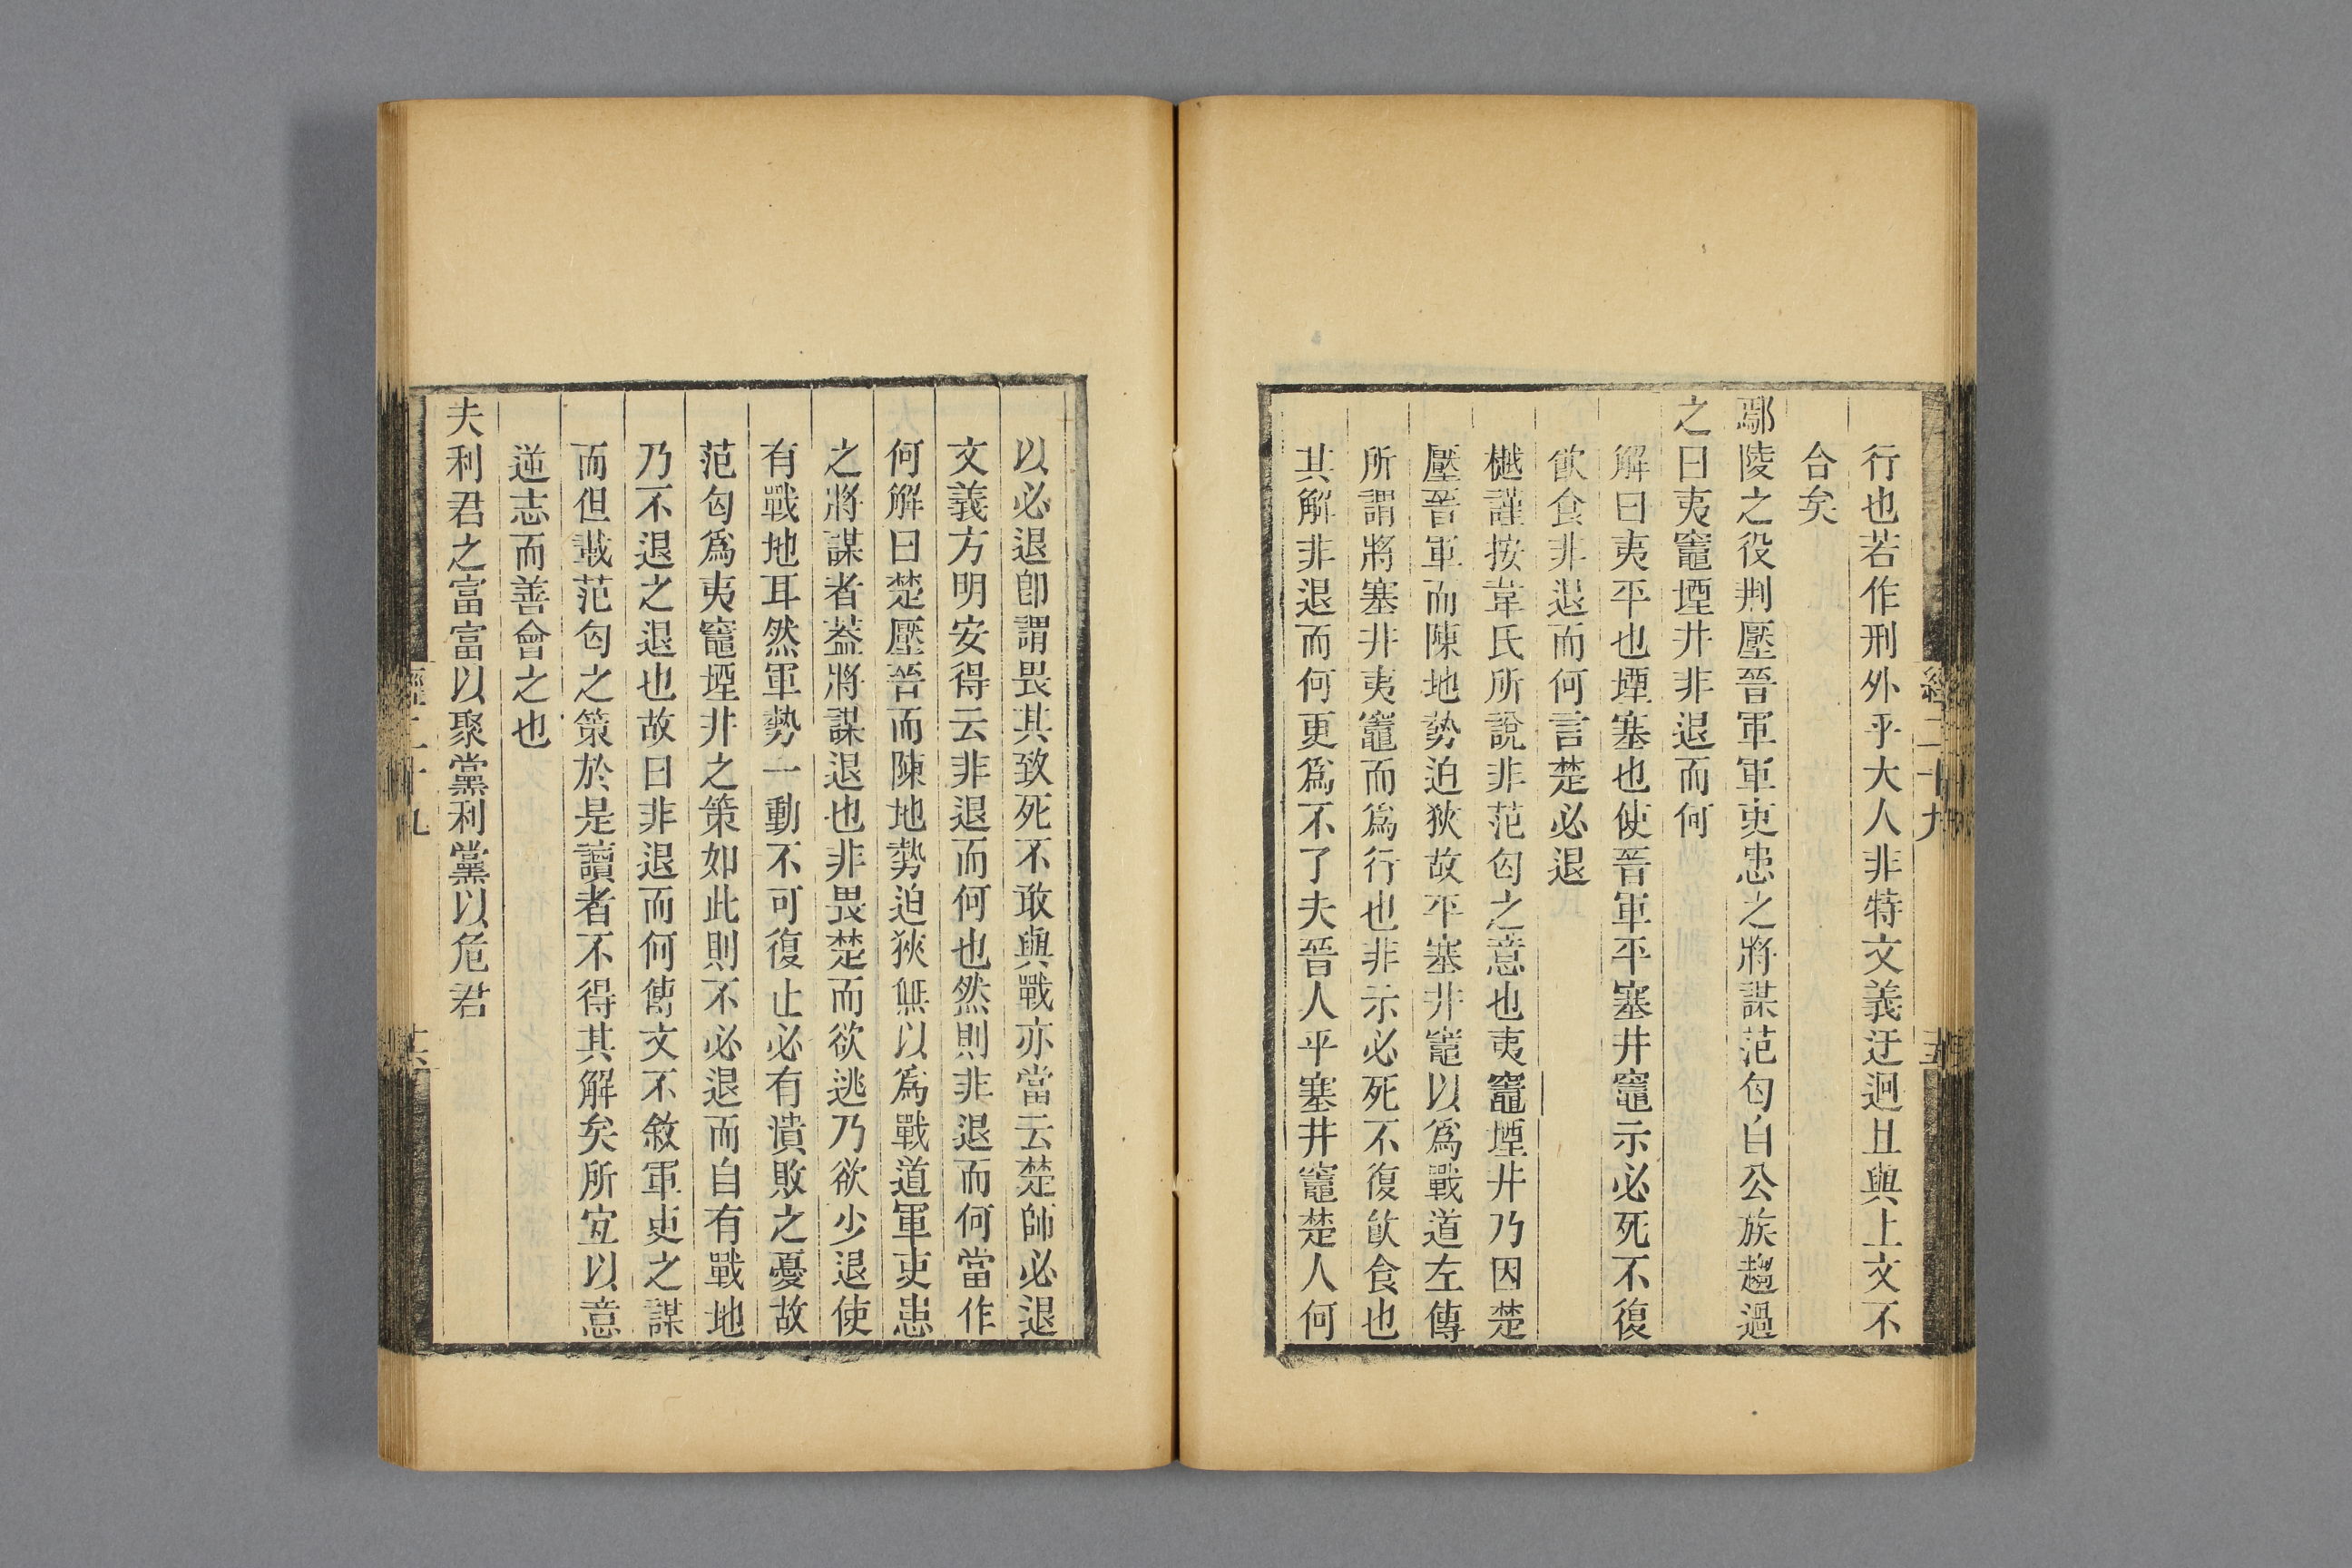 行也若作刑外乎大人非特文義迂迴且與上文不
合矣
鄢陵之役荆壓晉軍軍吏患之將謀范匄自公族趨過
之曰夷竈堙井非退而何
解曰夷平也堙塞也使晉軍平塞井竈示必死不復
飲食非退而何言楚必退
樾謹按韋氏所說非范匄之意也夷竈堙井乃因楚
壓晉軍而陳地勢迫狹故平塞井竈以爲戰道左傳
所謂將塞井夷竈而爲行也非示必死不復飲食也
其解非退而何更爲不了夫晉人平塞井竈楚人何
以必退卽謂畏其致死不敢與戰亦當云楚師必退
文義方明安得云非退而何也然則非退而何當作
何解曰楚壓晉而陳地勢迫狹無以爲戰道軍吏患
之將謀者葢將謀退也非畏楚而欲逃乃欲少退使
有戰地耳然軍勢一動不可復止必有潰敗之憂故
范匄爲夷竈堙井之策如此則不必退而自有戰地
乃不退之退也故曰非退而何傳文不敘軍吏之謀
而但載范匄之策於是讀者不得其解矣所宜以意
逆志而善會之也
夫利君之富富以聚黨利黨以危君